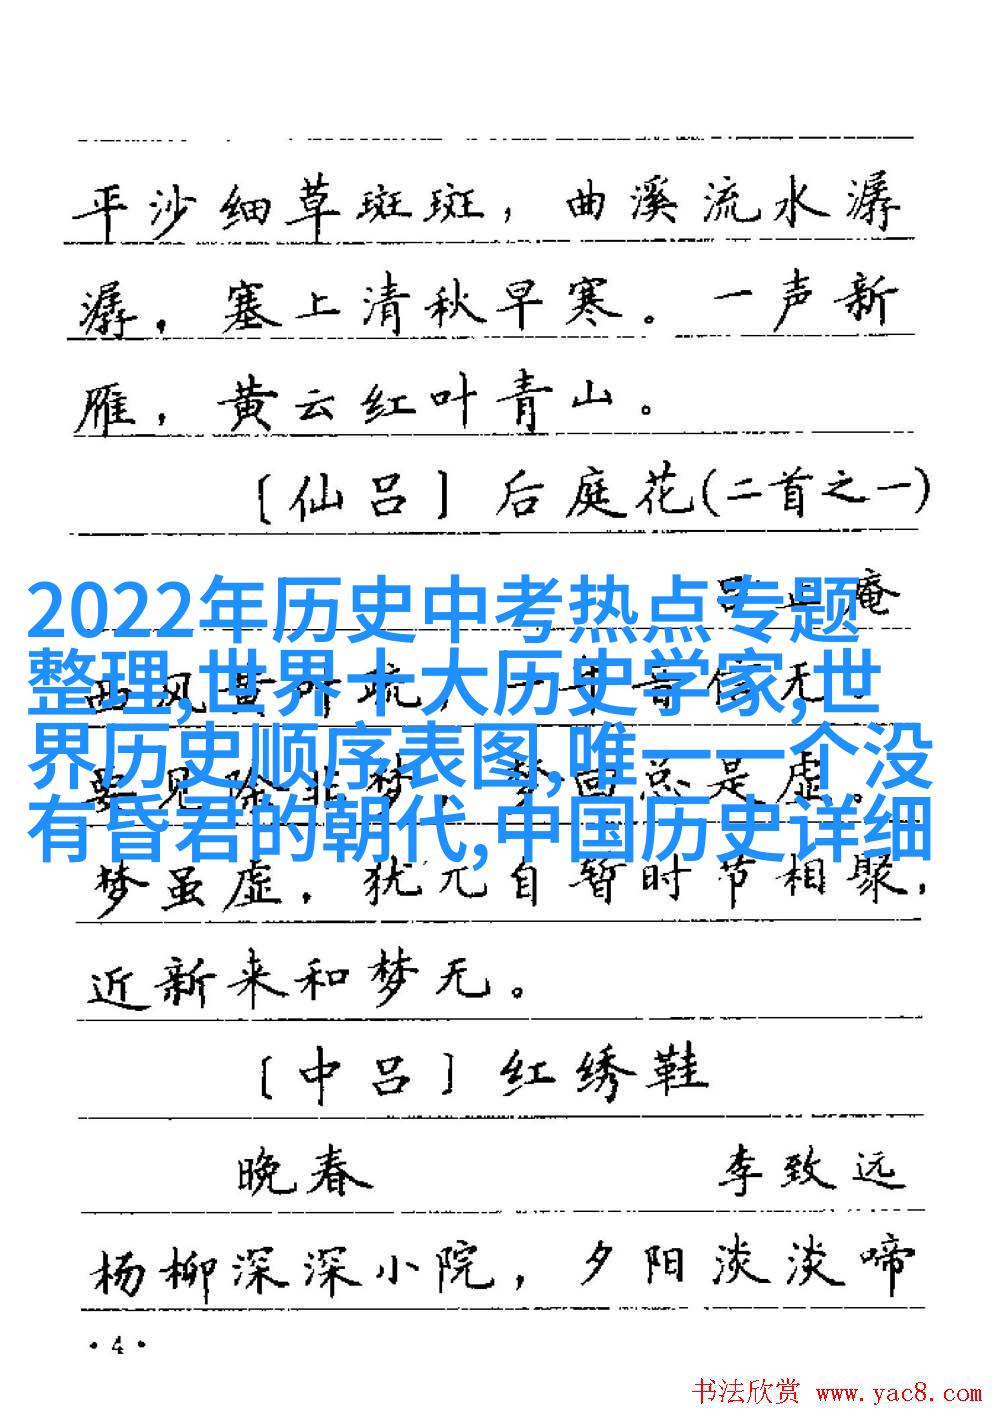 平沙细草斑斑，曲溪流水潺
潺，塞上清秋早寒。一声新
雁，黄云红叶青山。
〔仙吕〕后庭花(二首之一)
庵
2022年历史中考热点专题
整理,世界十大历史学家,世
界历史顺序表图,唯一一个没
有昏君的朝代,中国历史详细
西风黄叶疏，一年音信无。
要见除非梦，梦回总是虚。
梦虽虚，犹兀自暂时节相聚，
近新来和梦无。
〔中吕〕红绣鞋
晚春 李致远
杨柳深深小院，夕阳淡淡啼
·4·
书法欣赏 www.yac8.com